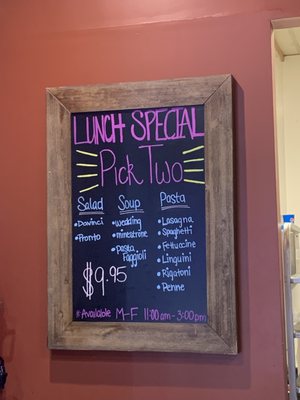 LUNCH SPECIAL
Pick Two
Salad
• Davinci
• Pronto
Soup
• wedding
• minestrone
• pasta
faggioli
Pasta
• Lasagna
• Spaghetti
• Fettuccine
• Linguini
• Rigatoni
• Penne
$9.95
*Available M-F 11:00am-3:00pm